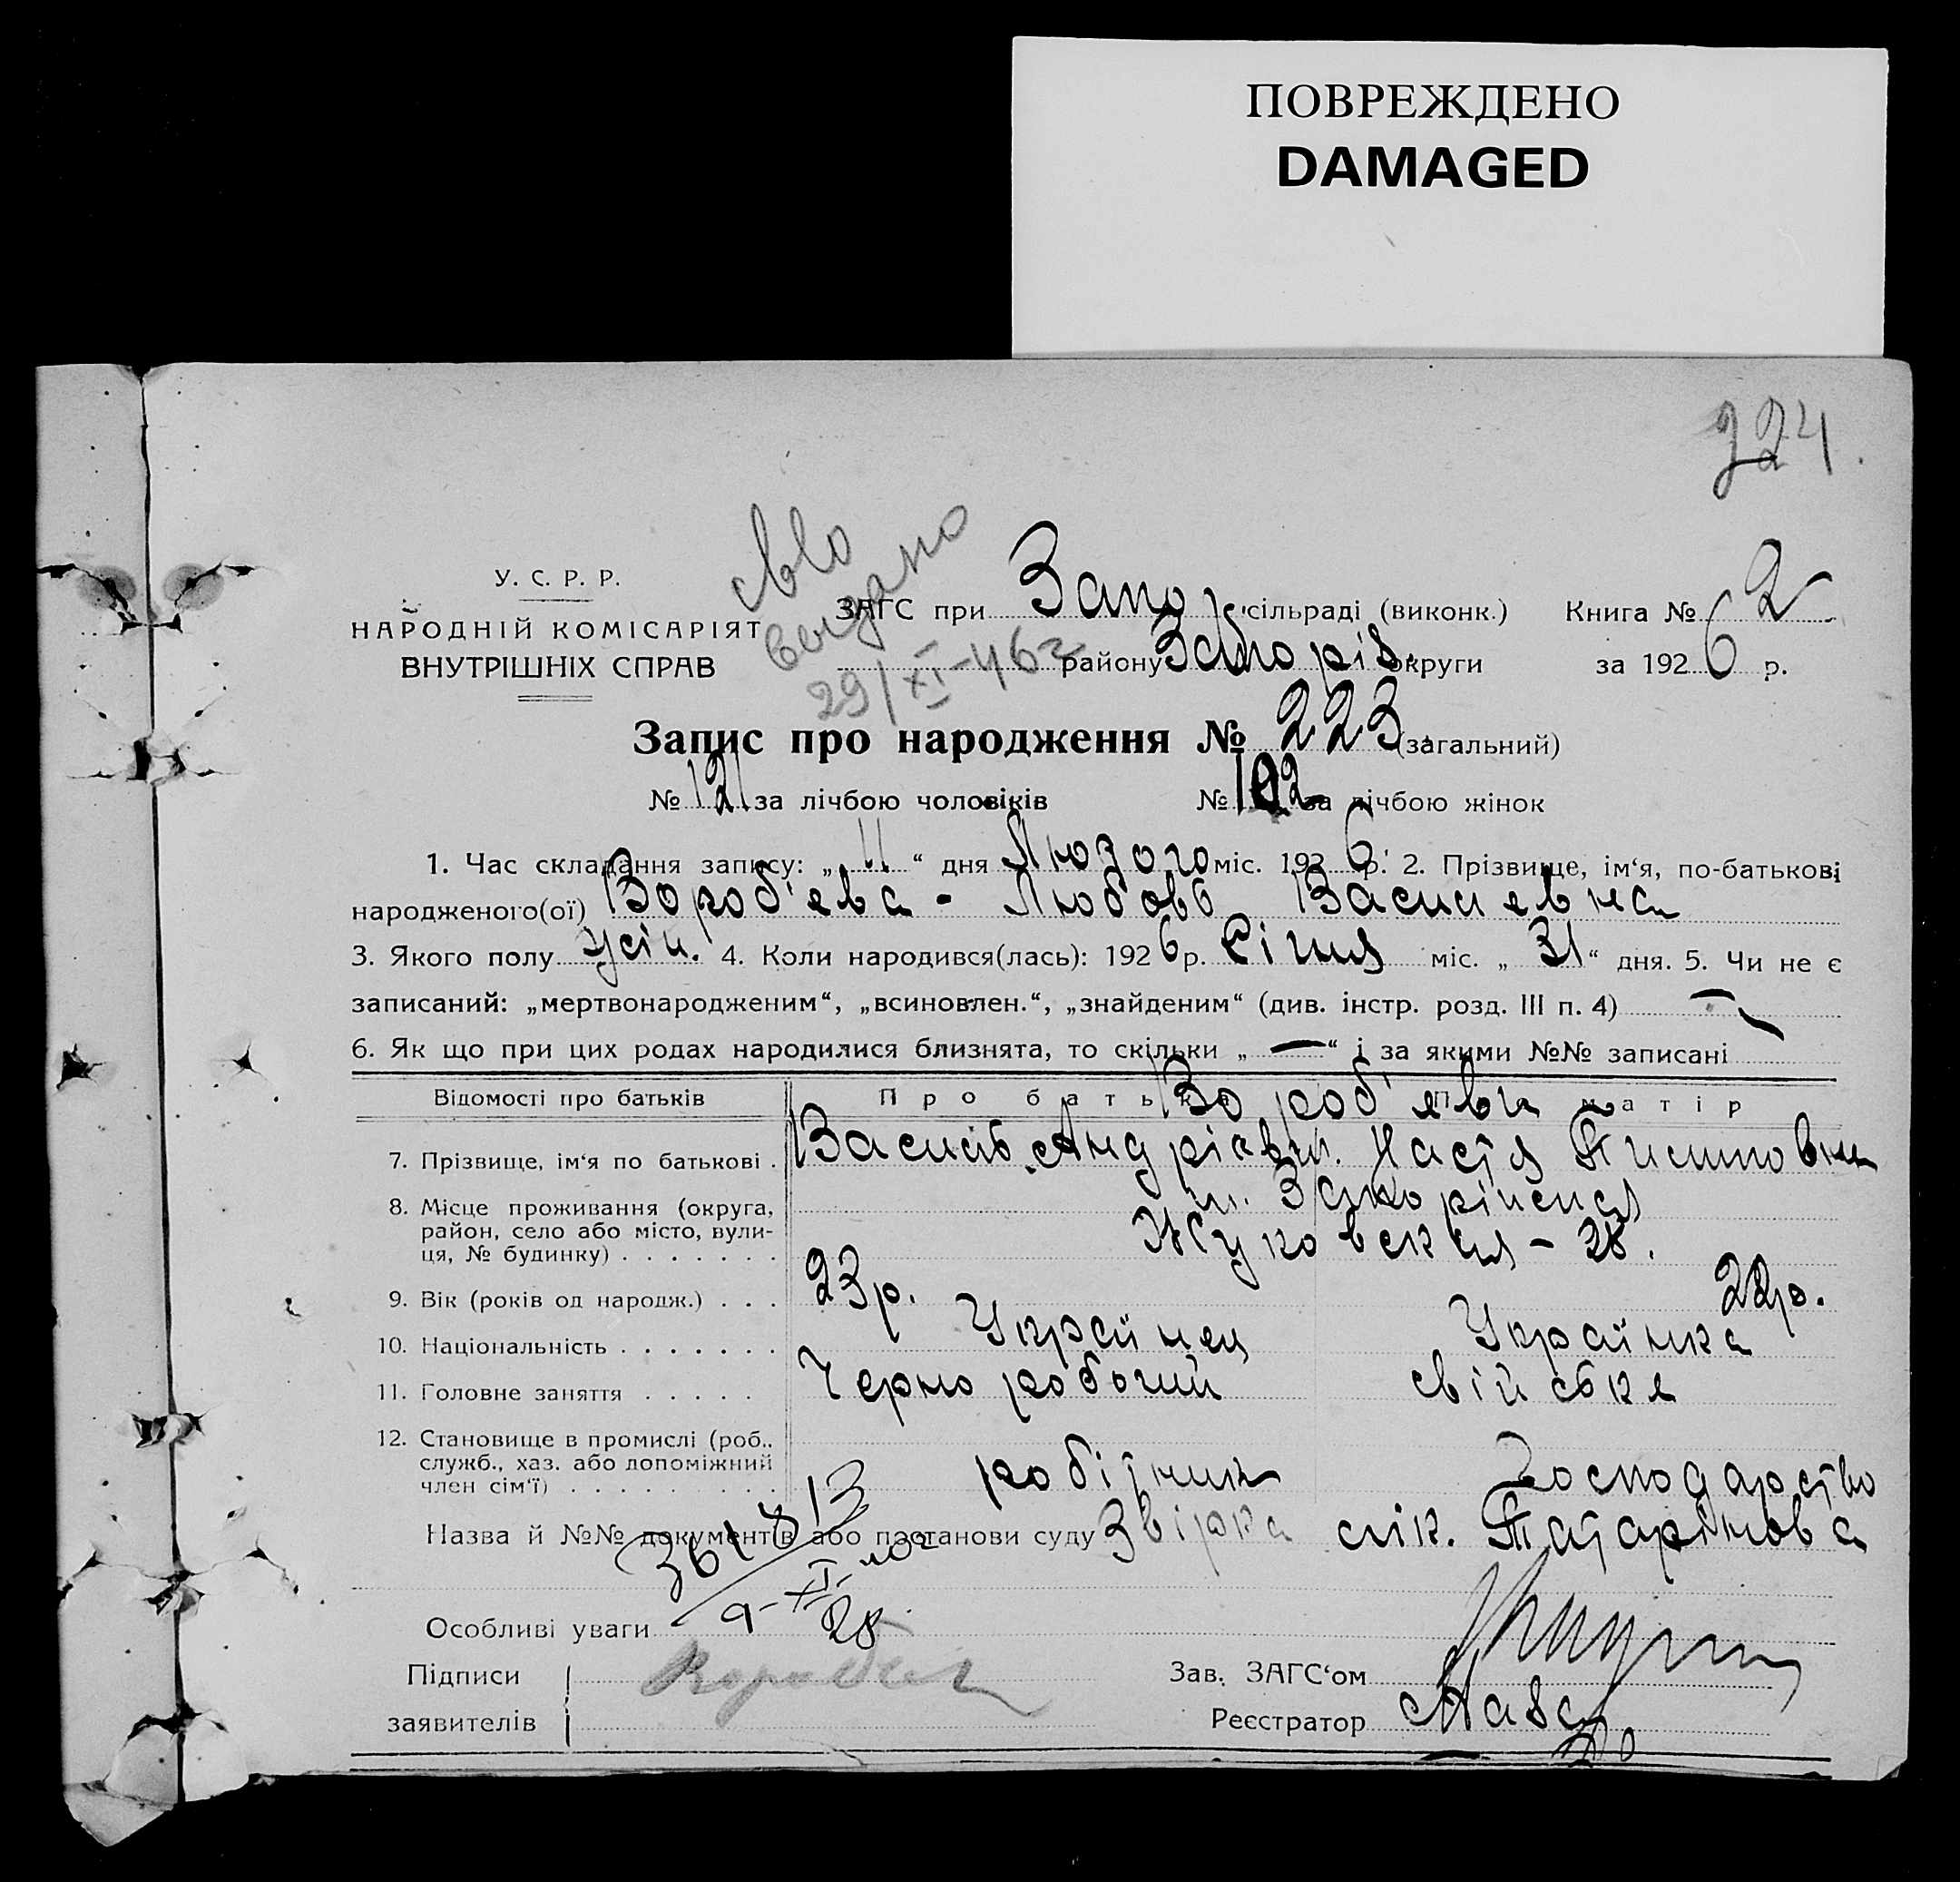 ПОВРЕЖДЕНО
DAMAGED
224.
У. С. Р. Р.
НАРОДНІЙ КОМІСАРІЯТ
ВНУТРІШНІХ СПРАВ
свво
выдано
29/XI-46г
ЗАГС при Запор сільраді (виконк.) Книга № 2
району Запоріз. округи за 1926 р.
Запис про народження № 223 (загальний)
№ 121 за лічбою чоловіків № 102 за лічбою жінок
1. Час складання запису: „11“ дня Лютого міс. 1926 р. 2. Прізвище, ім‘я, по-батькові
народженого(ої) Вороб'ева - Любовь Василевна
3. Якого полу жін. 4. Коли народився(лась): 1926 р. Січня міс. „31“ дня. 5. Чи не є
записаний: „мертвонародженим“, „всиновлен.“, „знайденим“ (див. інстр. розд. III п. 4) —
6. Як що при цих родах народилися близнята, то скільки „—“ і за якими №№ записані
Відомості про батьків Про батька Про матір
Вороб'яви
7. Прізвище, ім‘я по батькові . Василь Андрієвич. Настя Тимитовна
8. Місце проживання (округа, район, село або місто, вулиця, № будинку) . . . . . . . м. Запоріжжя
Жуковская - 28.
9. Вік (років од народж.) . . . 23р. 22р.
10. Національність . . . . . . . Українец Українка
11. Головне заняття . . . . . Чернороботчий свійське
12. Становище в промислі (роб., служб., хаз. або допоміжний член сім‘ї) . . . . . . . . . робітник Господарство
Назва й №№ документів або постанови суду Звірка лік. Татарінова
361813
9-XI
28
Особливі уваги
Підписи
заявителів
Зав. ЗАГС‘ом
Реєстратор